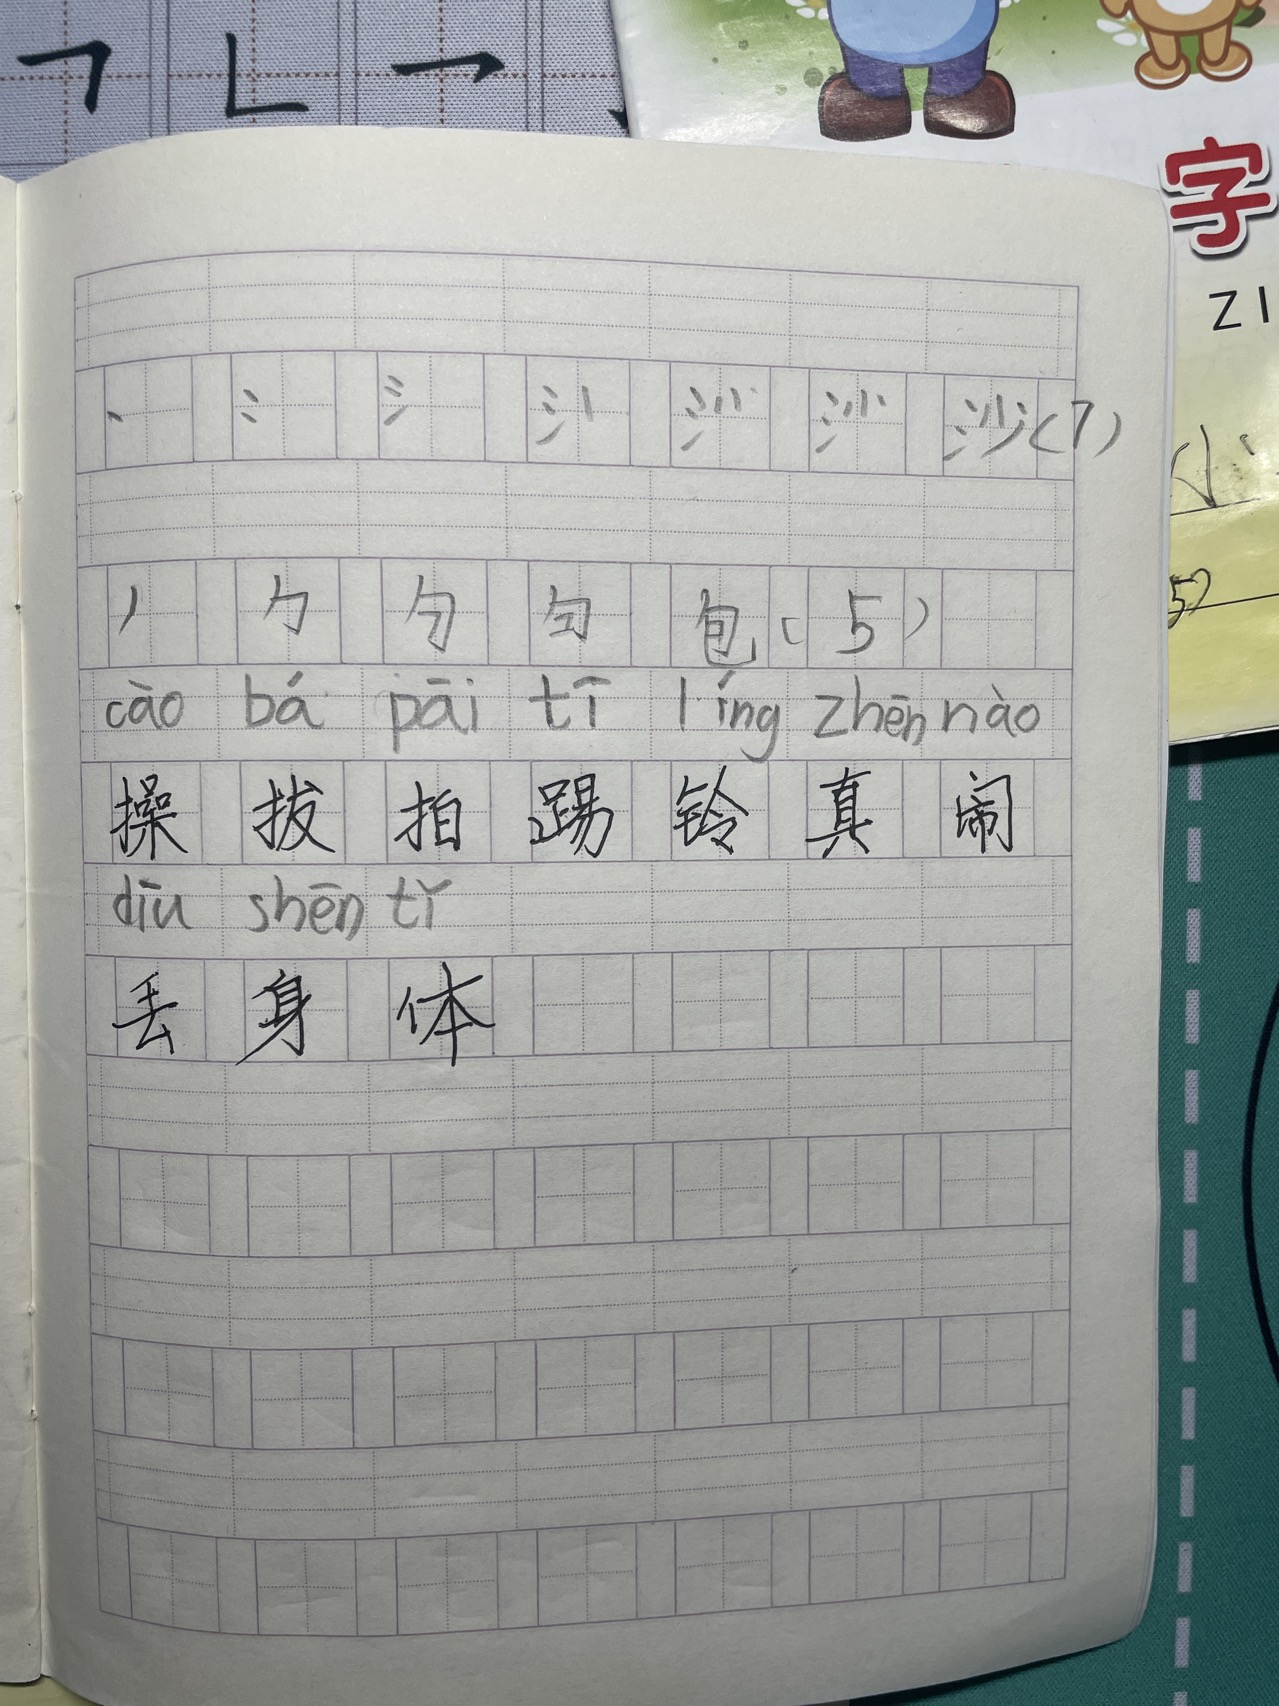 字
ZI
丶 冫 氵 沙 沙(7)
小
丿 勹 勺 匀 包(5)
5)
cào bá pāi tī líng zhēn nào
操 拔 拍 踢 铃 真 闹
diū shēn tǐ
丢 身 体